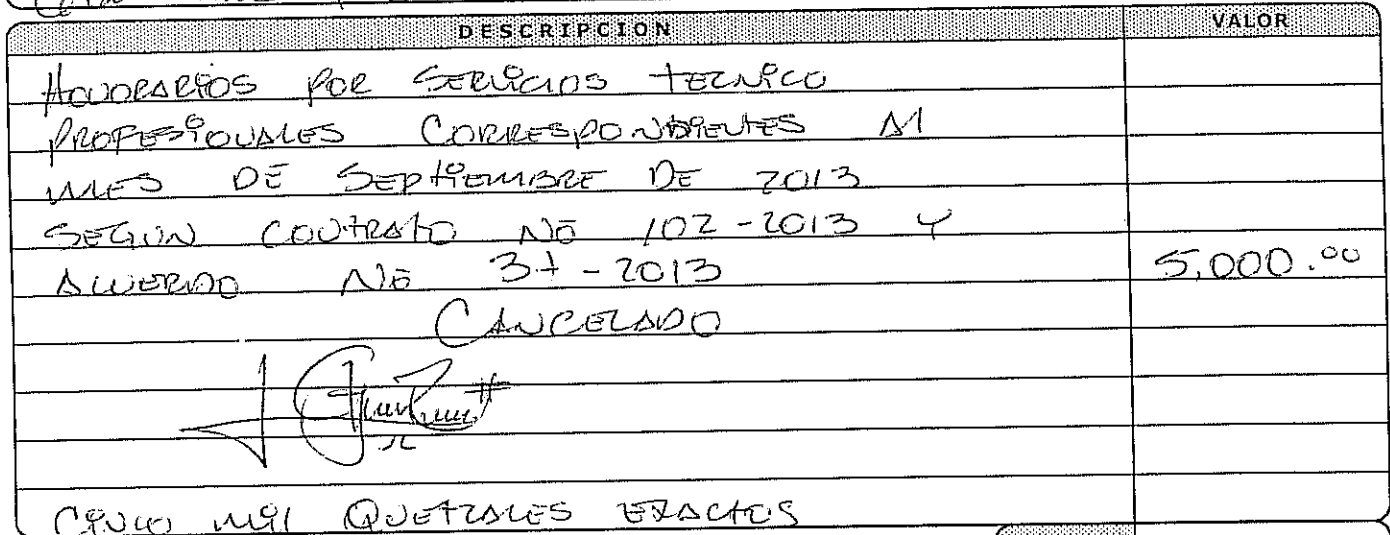 DESCRIPCION VALOR
HONORARIOS POR SERVICIOS TECNICO
PROFESIONALES CORRESPONDIENTES Al
MES DE SEPTIEMBRE DE 2013
SEGUN CONTRATO No 102-2013 Y
ACUERDO No 37-2013 5,000.00
CANCELADO
CINCO mil QUETZALES EXACTOS